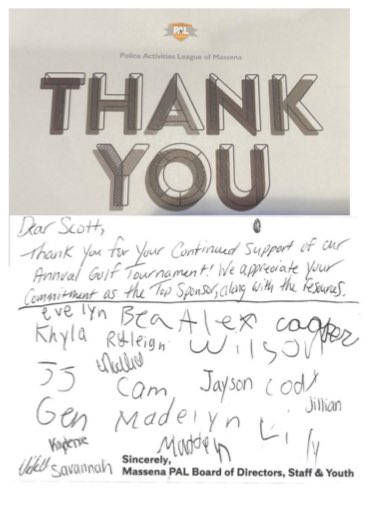 PAL
Police Activities League of Massena
THANK
YOU
Dear Scott,
Thank You for Your Continued Support of our
Annual Golf Tournament! We appreciate Your
Commitment as the Top Sponsor, along with the resources.
evelyn Bea Alex cooper
Khyla Ryleigh Wilson
JJ Cam Jayson Cody
Jillian
Gen Madelyn Lily
Madden
Savannah
Sincerely,
Massena PAL Board of Directors, Staff & Youth